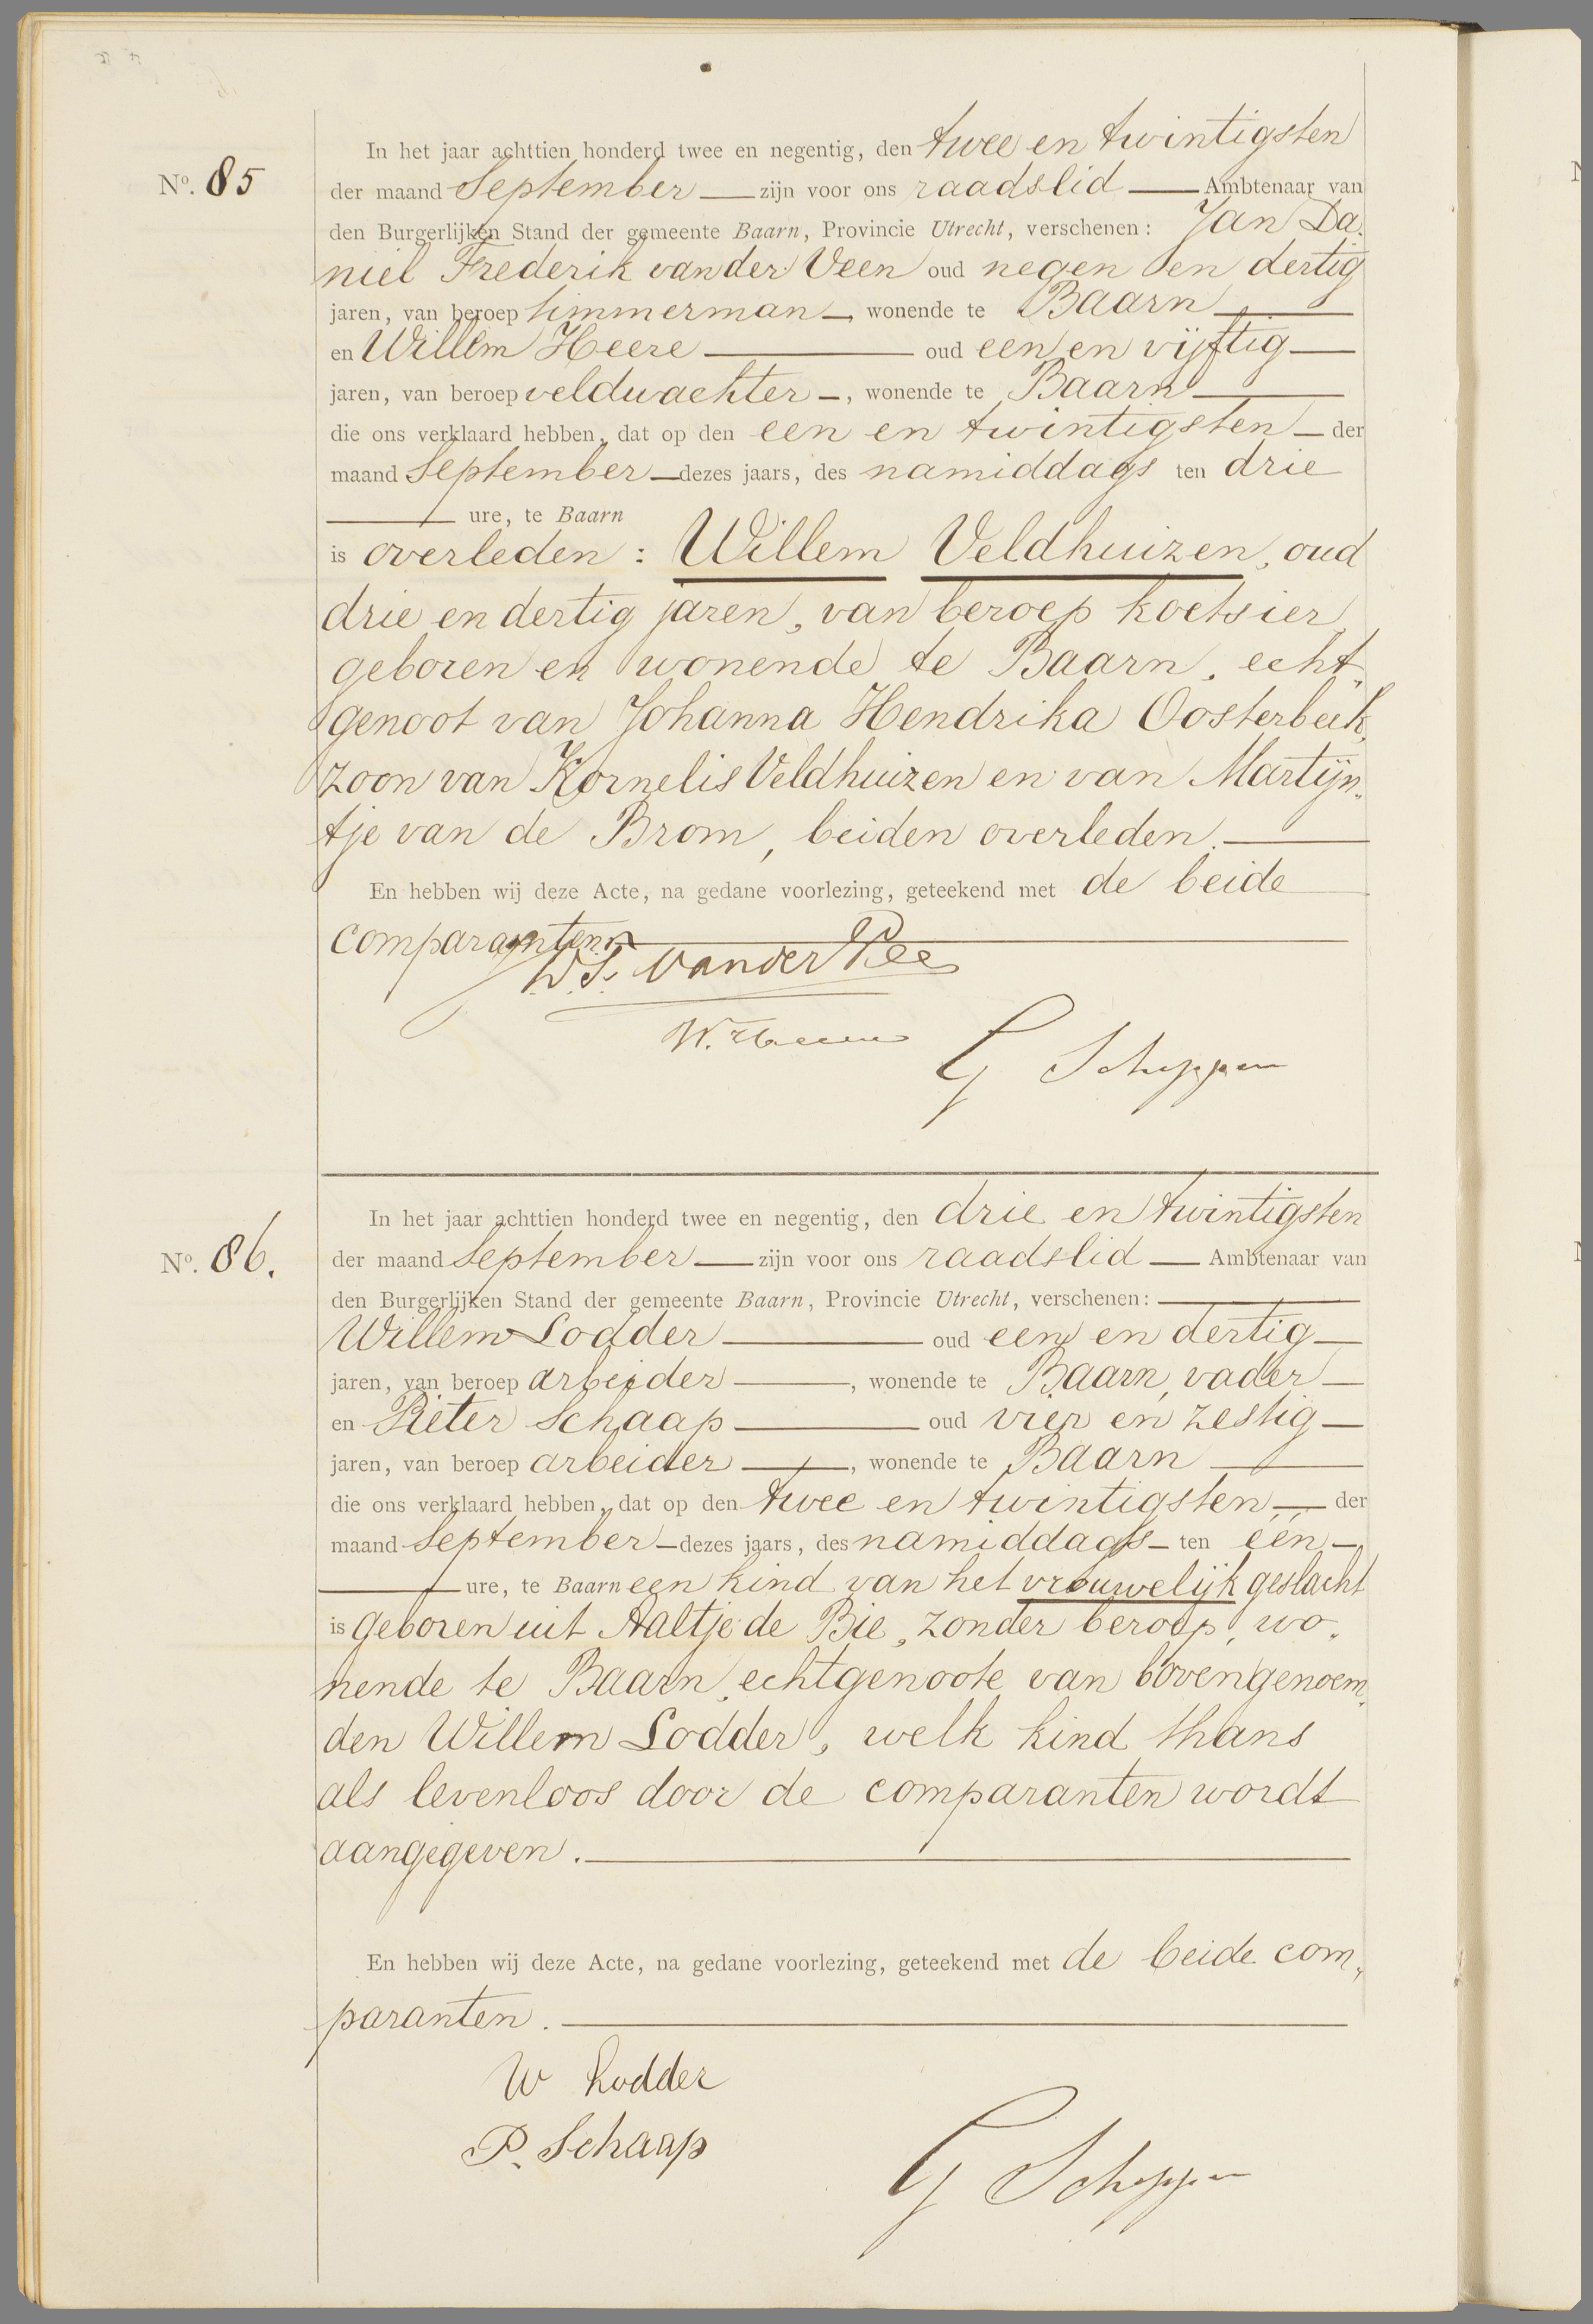 In het jaar achttien honderd twee en negentig, den twee en twintigsten
Nº. 85
der maand September — zijn voor ons raadslid — Ambtenaar van
den Burgerlijken Stand der gemeente Baarn, Provincie Utrecht, verschenen: Jan Da„
niel Frederik van der Veen oud negen en dertig
jaren, van beroep timmerman —, wonende te Baarn —
en Willem Heere — oud een en vijftig —
jaren, van beroep veldwachter —, wonende te Baarn —
die ons verklaard hebben, dat op den een en twintigsten — der
maand September — dezes jaars, des namiddags ten drie
— ure, te Baarn
is overleden: Willem Veldhuizen, oud
drie en dertig jaren, van beroep koetsier,
geboren en wonende te Baarn, echt„
genoot van Johanna Hendrika Oosterbeek,
zoon van Kornelis Veldhuizen en van Martijn„
tje van de Brom, beiden overleden. —
En hebben wij deze Acte, na gedane voorlezing, geteekend met de beide
comparanten. —
van der Vee
W. Heere
G Scheppen
In het jaar achttien honderd twee en negentig, den drie en twintigsten
Nº. 86.
der maand September — zijn voor ons raadslid — Ambtenaar van
den Burgerlijken Stand der gemeente Baarn, Provincie Utrecht, verschenen: —
Willem Lodder — oud een en dertig —
jaren, van beroep arbeider —, wonende te Baarn, vader —
en Pieter Schaap — oud vier en zestig —
jaren, van beroep arbeider —, wonende te Baarn —
die ons verklaard hebben, dat op den twee en twintigsten — der
maand September — dezes jaars, des namiddags — ten één —
— ure, te Baarn een kind van het vrouwelijk geslacht
is geboren uit Aaltje de Bie, zonder beroep, wo„
nende te Baarn, echtgenoote van bovengenoem„
den Willem Lodder, welk kind thans
als levenloos door de comparanten wordt
aangegeven. —
En hebben wij deze Acte, na gedane voorlezing, geteekend met de beide com„
paranten. —
W Lodder
P. Schaap
G Scheppen